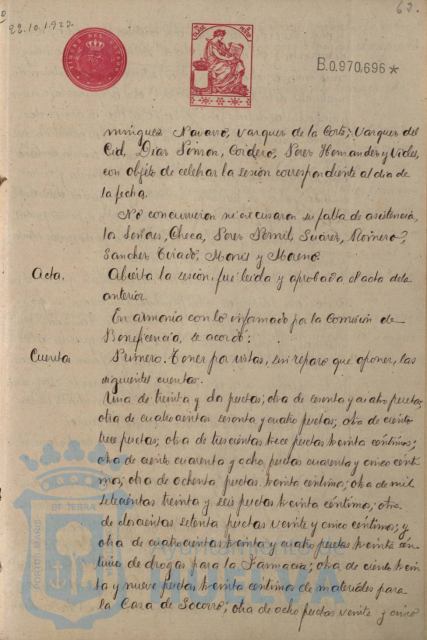 22.10.1922.
62.
B.0.970,696*
mínguez Navarro, Vazquez de la Corte, Vazquez del
Cid, Diaz Simon, Cordero, Perez Hernandez y Vides,
con objeto de celebrar la sesión correspondiente al dia de
la fecha.
No concurrieron ni excusaron su falta de asistencia,
los Señores, Checa, Perez Suárez, Romero,
Sanchez y Moreno.
Acta. Abierta la sesión, fué leida y aprobada el acta de la
anterior.
En armonia con lo informado por la Comisión de
Beneficencia, se acordó:
Cuentas Primero. Tener por vistas, sin reparo que oponer, las
siguientes cuentas.
Una de treinta y dos pesetas; otra de sesenta y cuatro pesetas,
otra de cuatrocientas sesenta y cuatro pesetas; otra de ciento
trece pesetas; otra de trescientas trece pesetas treinta céntimos;
otra de ciento cuarenta y ocho pesetas cuarenta y cinco cénti
mos; otra de ochenta pesetas treinta céntimos; otra de mil
setecientas treinta y seis pesetas treinta céntimos; otra
de doscientas setenta pesetas veinte y cinco céntimos; y
otra de cuatrocientas treinta y cuatro pesetas treinta cén
timos de drogas para la Farmacia; otra de ciento trein
ta y nueve pesetas treinta céntimos de materiales para
la Casa de Socorro; otra de ocho pesetas veinte y cinco
PORTUS MARIS ET TERRAE
Ayuntamiento de
HUELVA